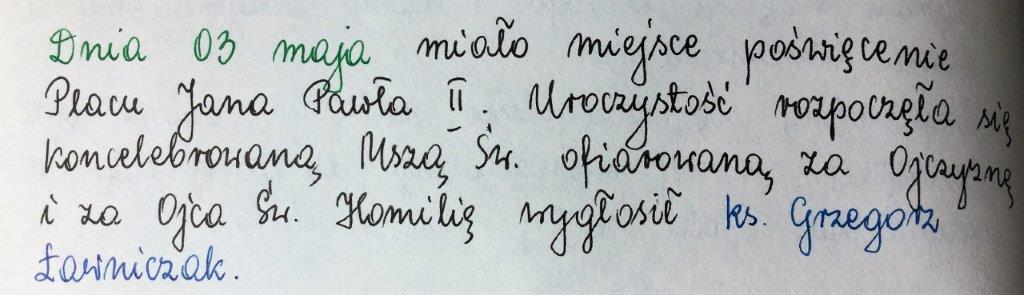 Dnia 03 maja miało miejsce poświęcenie
Placu Jana Pawła II. Uroczystość rozpoczęła się
koncelebrowaną Mszą Św. ofiarowaną za Ojczyznę
i za Ojca Św. Homilię wygłosił ks. Grzegorz
Ławniczak.